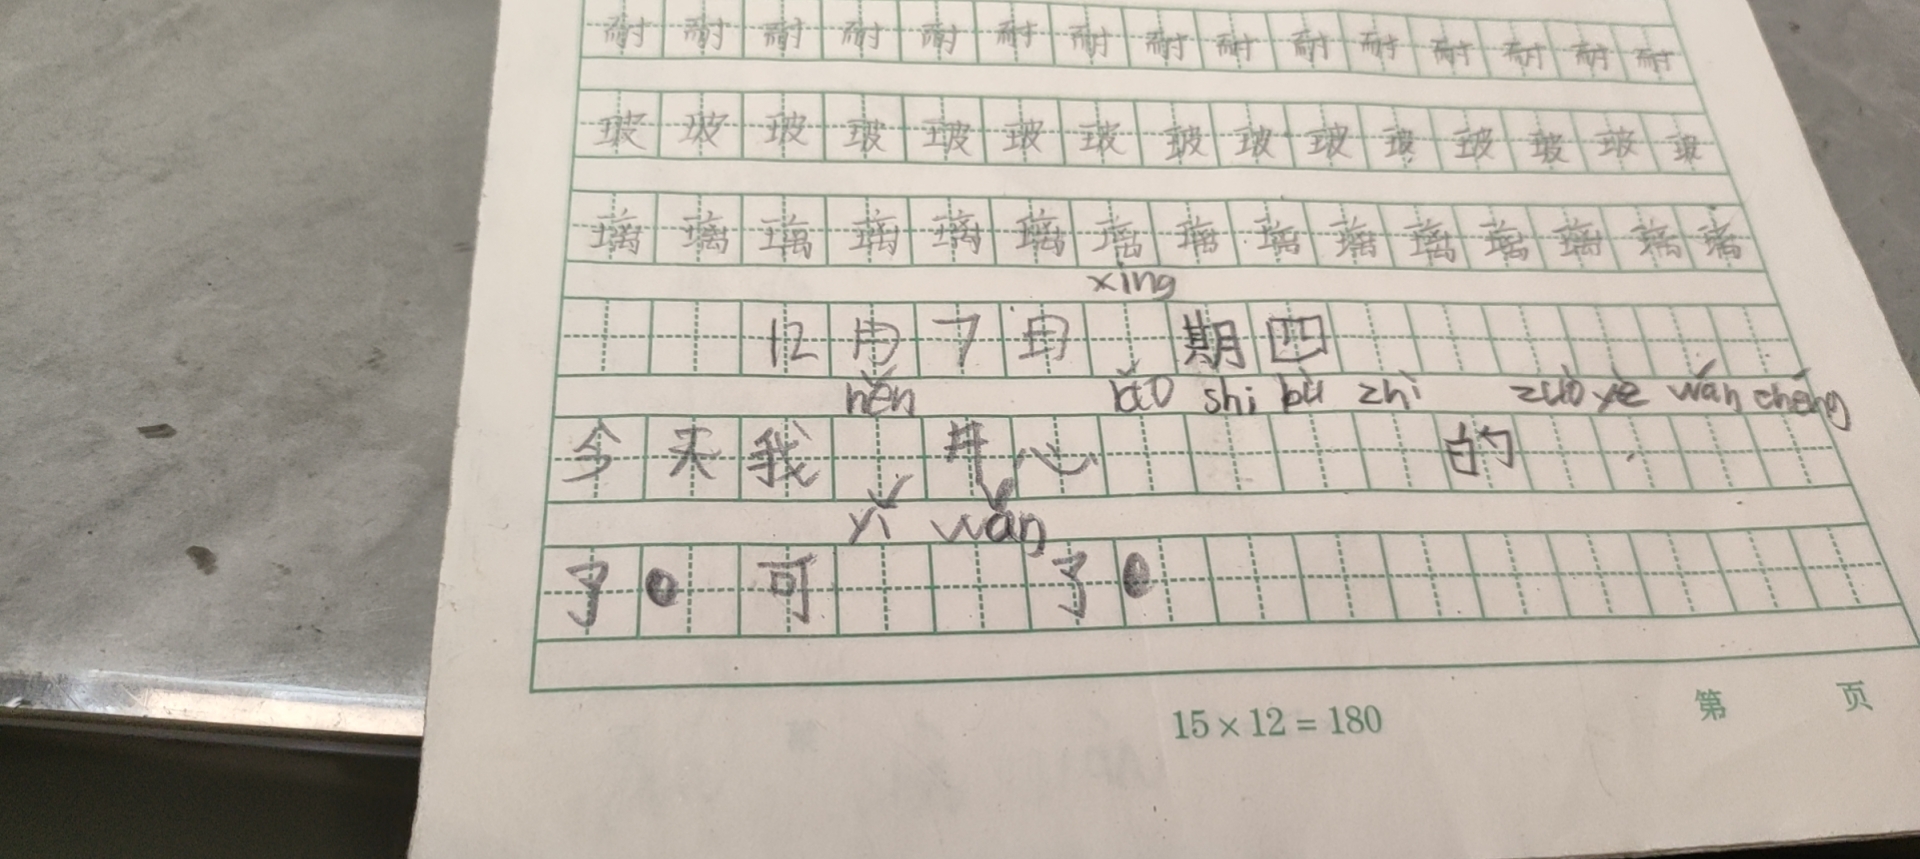 耐耐耐耐耐耐耐耐耐耐耐耐耐耐耐
玻玻玻玻玻玻玻玻玻玻玻玻玻玻玻
璃璃璃璃璃璃璃璃璃璃璃璃璃璃璃
xīng
12月7日 期四
hěn bǎo shi bù zhì zuò yè wán chéng
今天我 开心 的
yǐ wǎn
了。可 了。
15×12=180 第 页